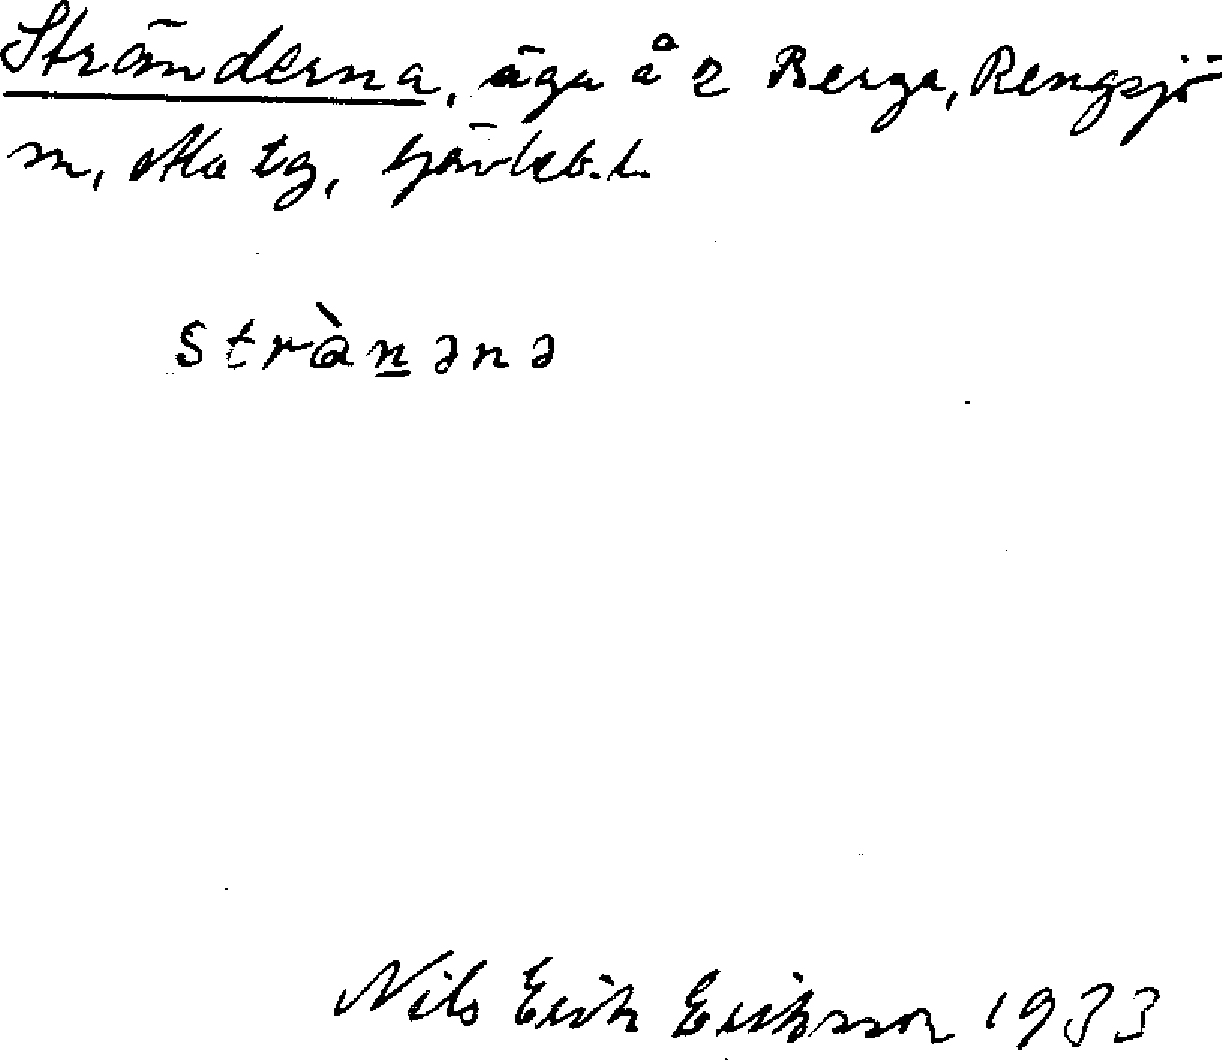 Stränderna, äga å 2 Berga, Rengsjö
sn, Ala tg, Gävleb. l.
strànənə
Nils Erik Eriksson 1933